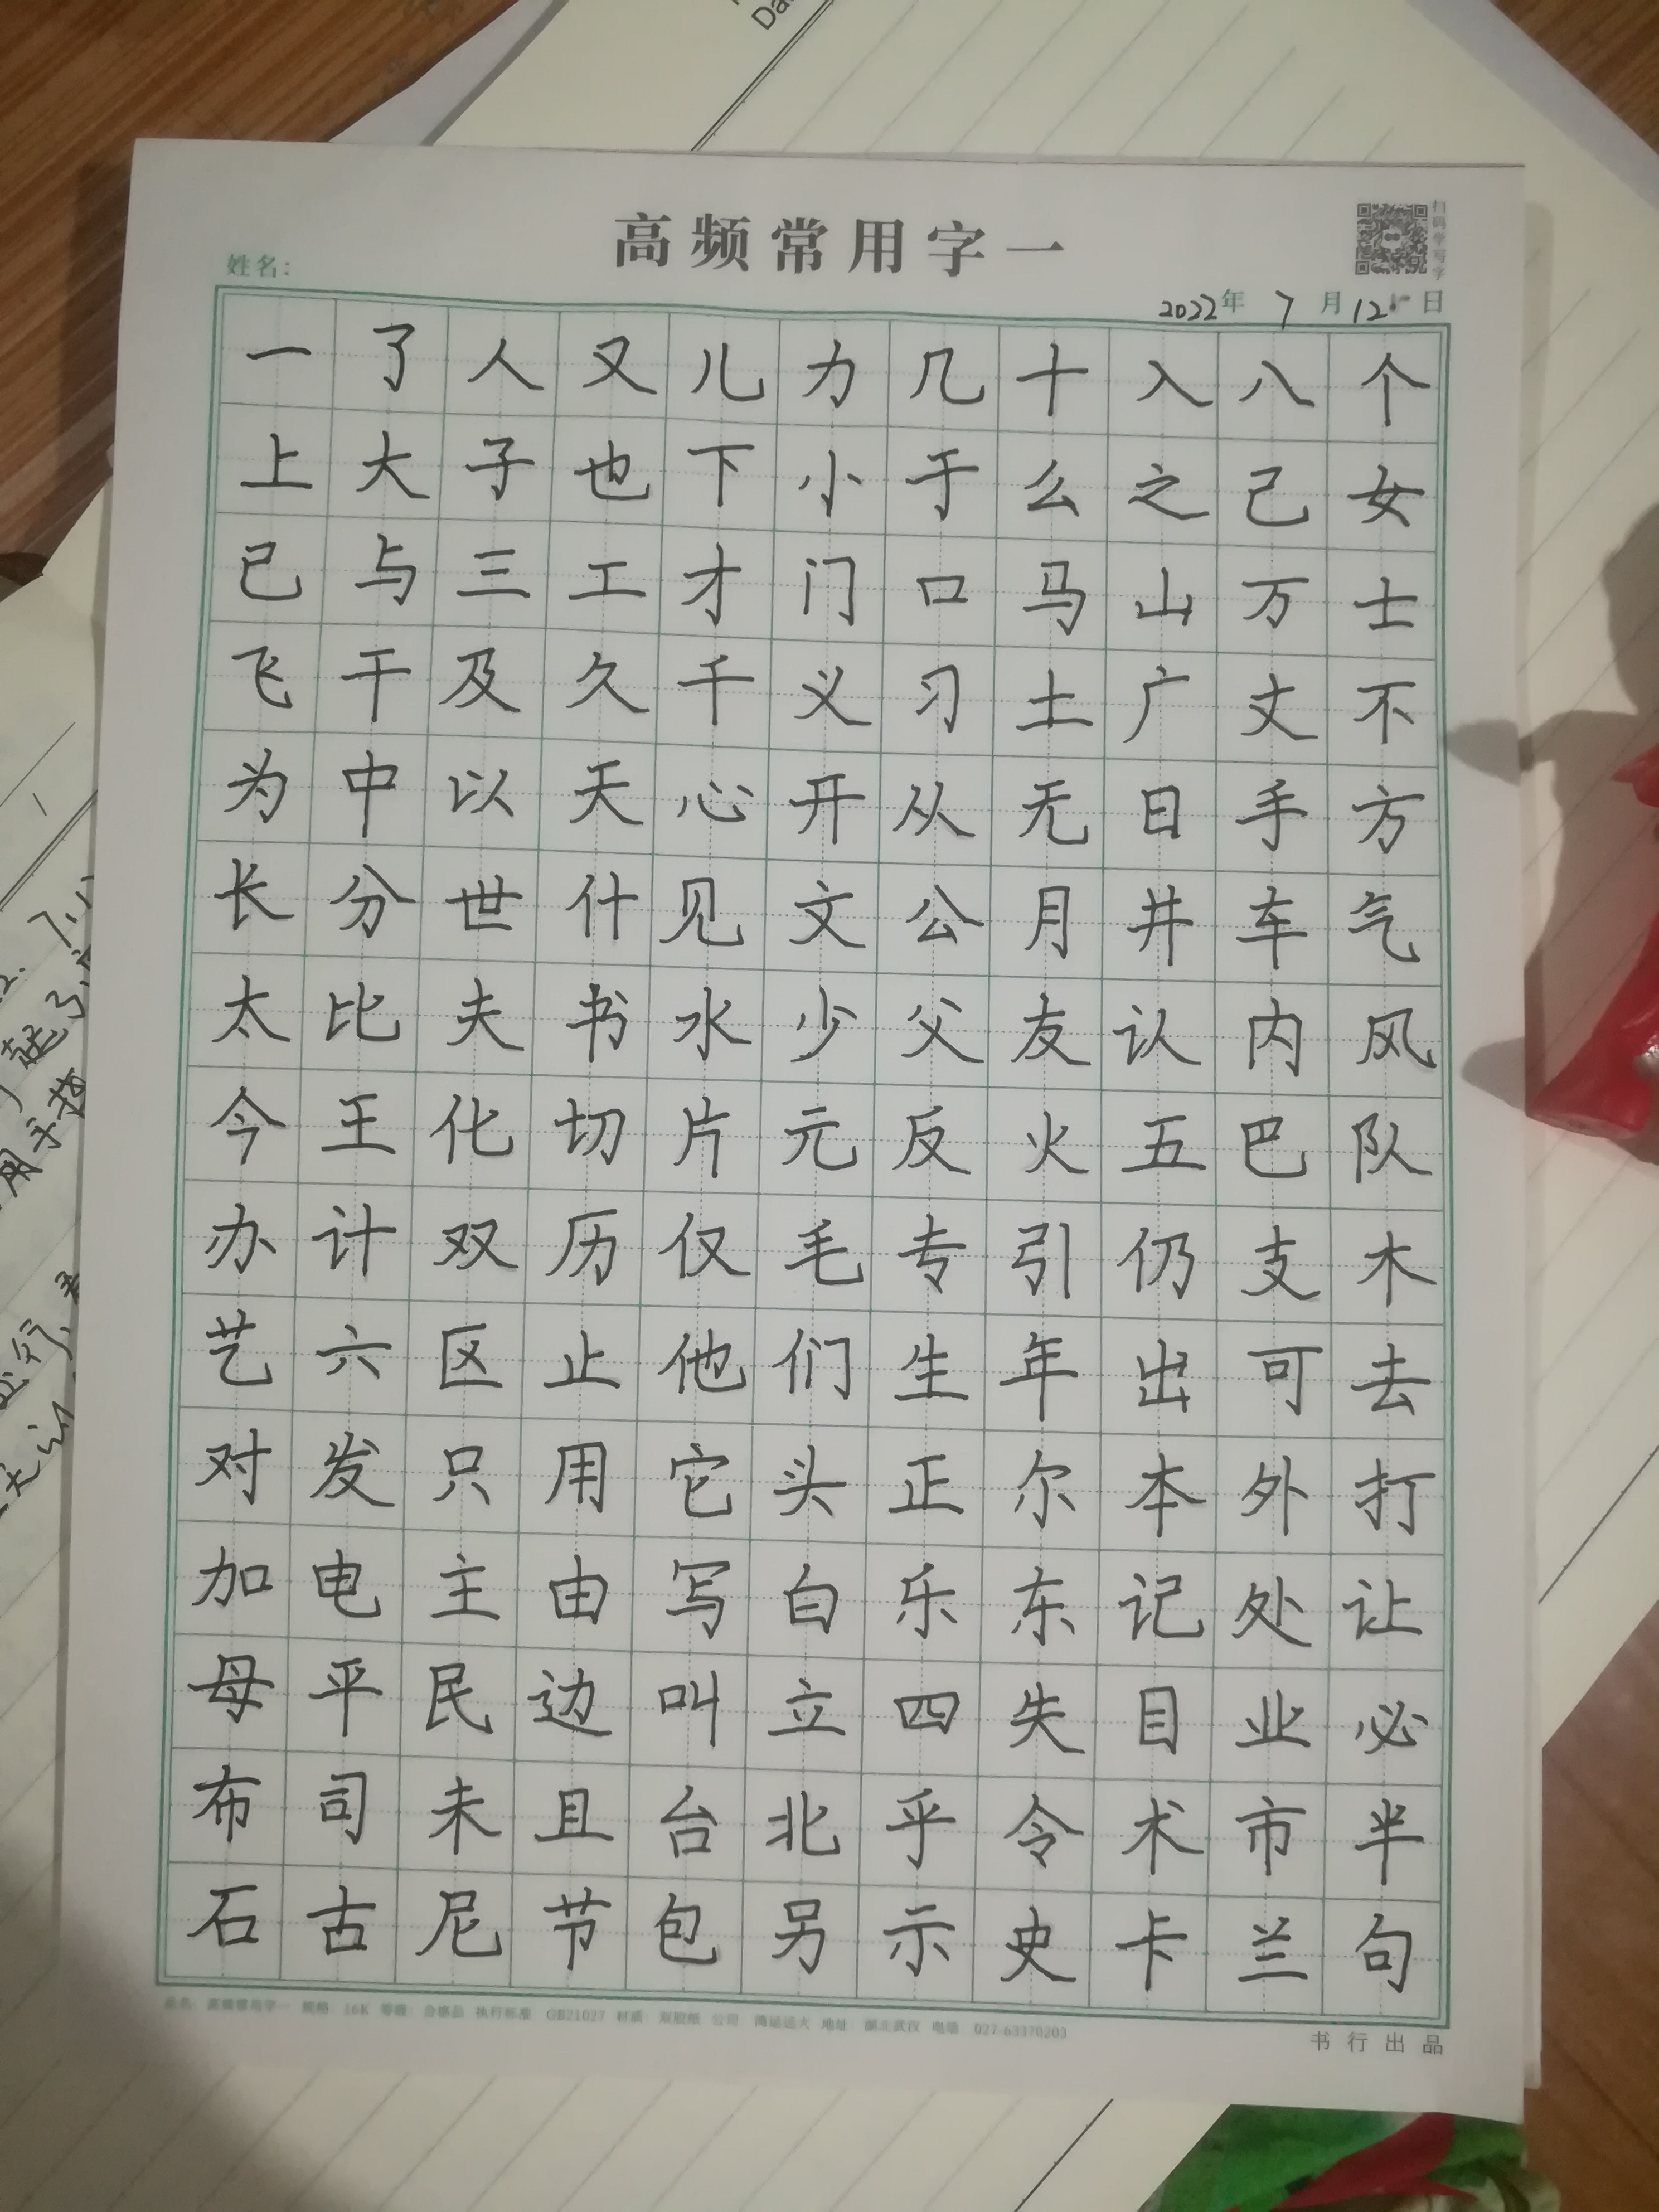 高频常用字一
扫码学写字
姓名：
2022年 7 月 12 日
一了人又儿力几十入八个
上大子也下小于么之己女
已与三工才门口马山万士
飞干及久千义习土广丈不
为中以天心开从无日手方
长分世什见文公月井车气
太比夫书水少父友认内风
今王化切片元反火五巴队
办计双历仅毛专引仍支木
艺六区止他们生年出可去
对发只用它头正尔本外打
加电主由写白乐东记处让
母平民边叫立四失目业必
布司未且台北乎令术市半
石古尼节包另示史卡兰句
品名：高频常用字一 规格：16K 等级：合格品 执行标准 GB21027 材质：双胶纸 公司 地址 湖北武汉 电话 027-63370203
书行出品